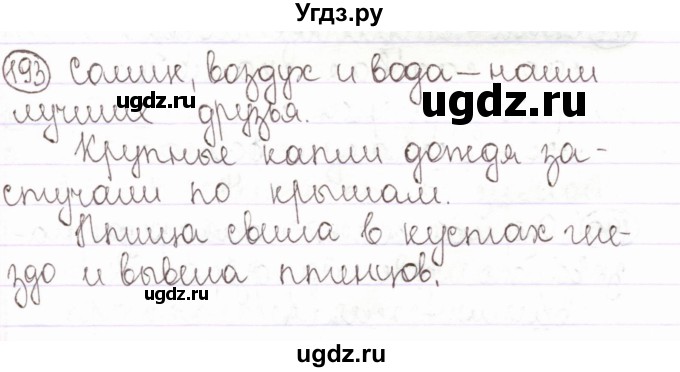 Угдз.ру
193 Солнк, воздух и вода – наши
лучшие друзья.
ugdz.ru
ugdz.ru
Крупные капли дождя за-
стучали по крышам.
Птица свила в кустах гне-
здо и вывела птенцов.
ugdz.ru
ugdz.ru